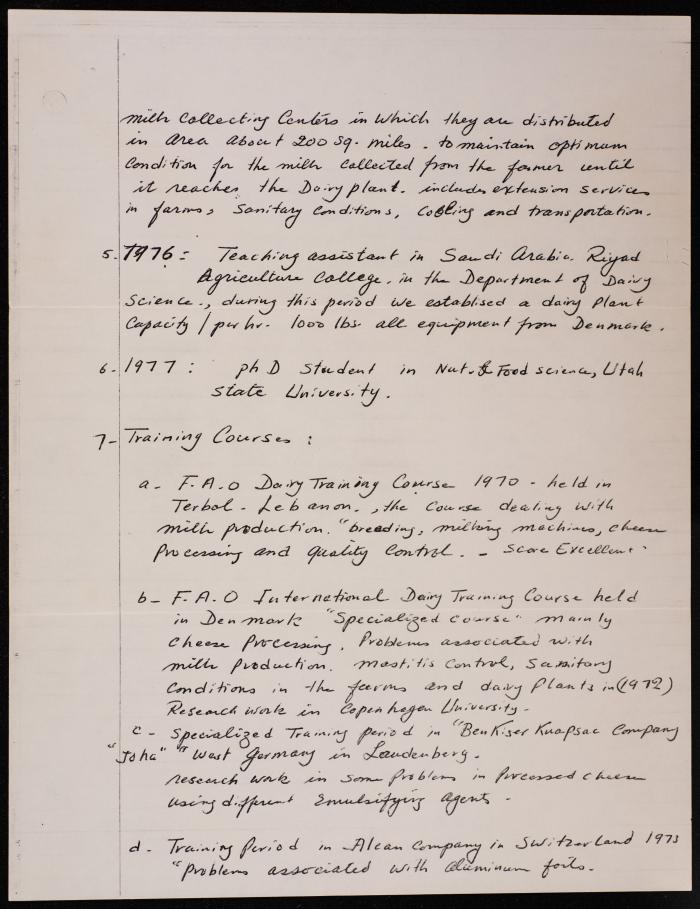 milk Collecting Centers in which they are distributed
in Area About 200 Sq. miles - to maintain optimum
Condition for the milk Collected from the farmer until
it reaches the Dairy plant. includes extension services
in farms, Sanitary Conditions, Cooling and transportation.
5. 1976: Teaching assistant in Saudi Arabia. Riyad
Agriculture College. in the Department of Dairy
Science., during this period we establised a dairy Plant
Capacity / per hr. 1000 lbs. all equipment from Denmark.
6- 1977: ph D Student in Nut. & Food science, Utah
State University.
7- Training Courses:
a- F.A.O Dairy Training Course 1970 - held in
Terbol - Lebanon., the course dealing with
milk production. "breeding, milking machines, cheese
Processing and Quality Control. - Score Excellent.
b- F.A.O International Dairy Training Course held
in Denmark "Specialized course" mainly
Cheese Processing, Problems associated with
milk Production. mastitis Control, Sanitary
Conditions in the farms and dairy Plants in (1972)
Research work in Copenhagen University.
c- Specialized Training period in "BenKiser Knapsac Company
"Joha" " West Germany in Laudenberg.
research work in some Problems in Processed cheese
using different Emulsifying Agents.
d- Training Period in Alcan Company in Switzerland 1973
"Problems associated with Aluminum foils.